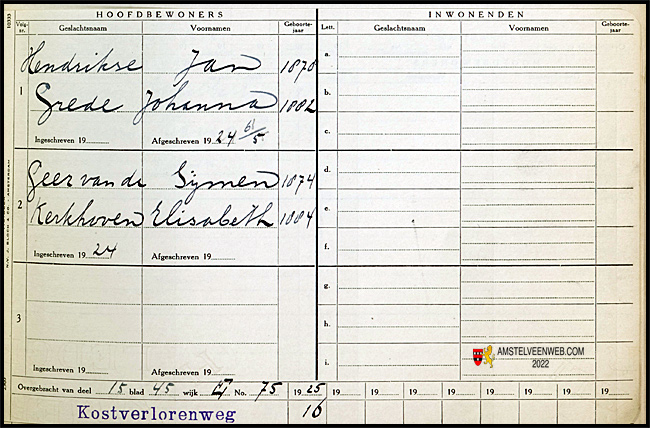 HOOFDBEWONERS
INWONENDEN
Volg-nr. Geslachtsnaam Voornamen Geboorte-jaar
Lett. Geslachtsnaam Voornamen Geboorte-jaar
1
Hendrikse Jan 1878
Grede Johanna 1882
Ingeschreven 19 Afgeschreven 19 24 61/5
2
Geer van de Sijmen 1874
Kerkhoven Elisabeth 1884
Ingeschreven 19 24 Afgeschreven 19
3
Ingeschreven 19 Afgeschreven 19
a.
b.
c.
d.
e.
f.
g.
h.
i.
AMSTELVEENWEB.COM
2022
Overgebracht van deel 15 blad 45 wijk No. 75 1925 19 19 19 19 19 19 19 19
Kostverlorenweg 16